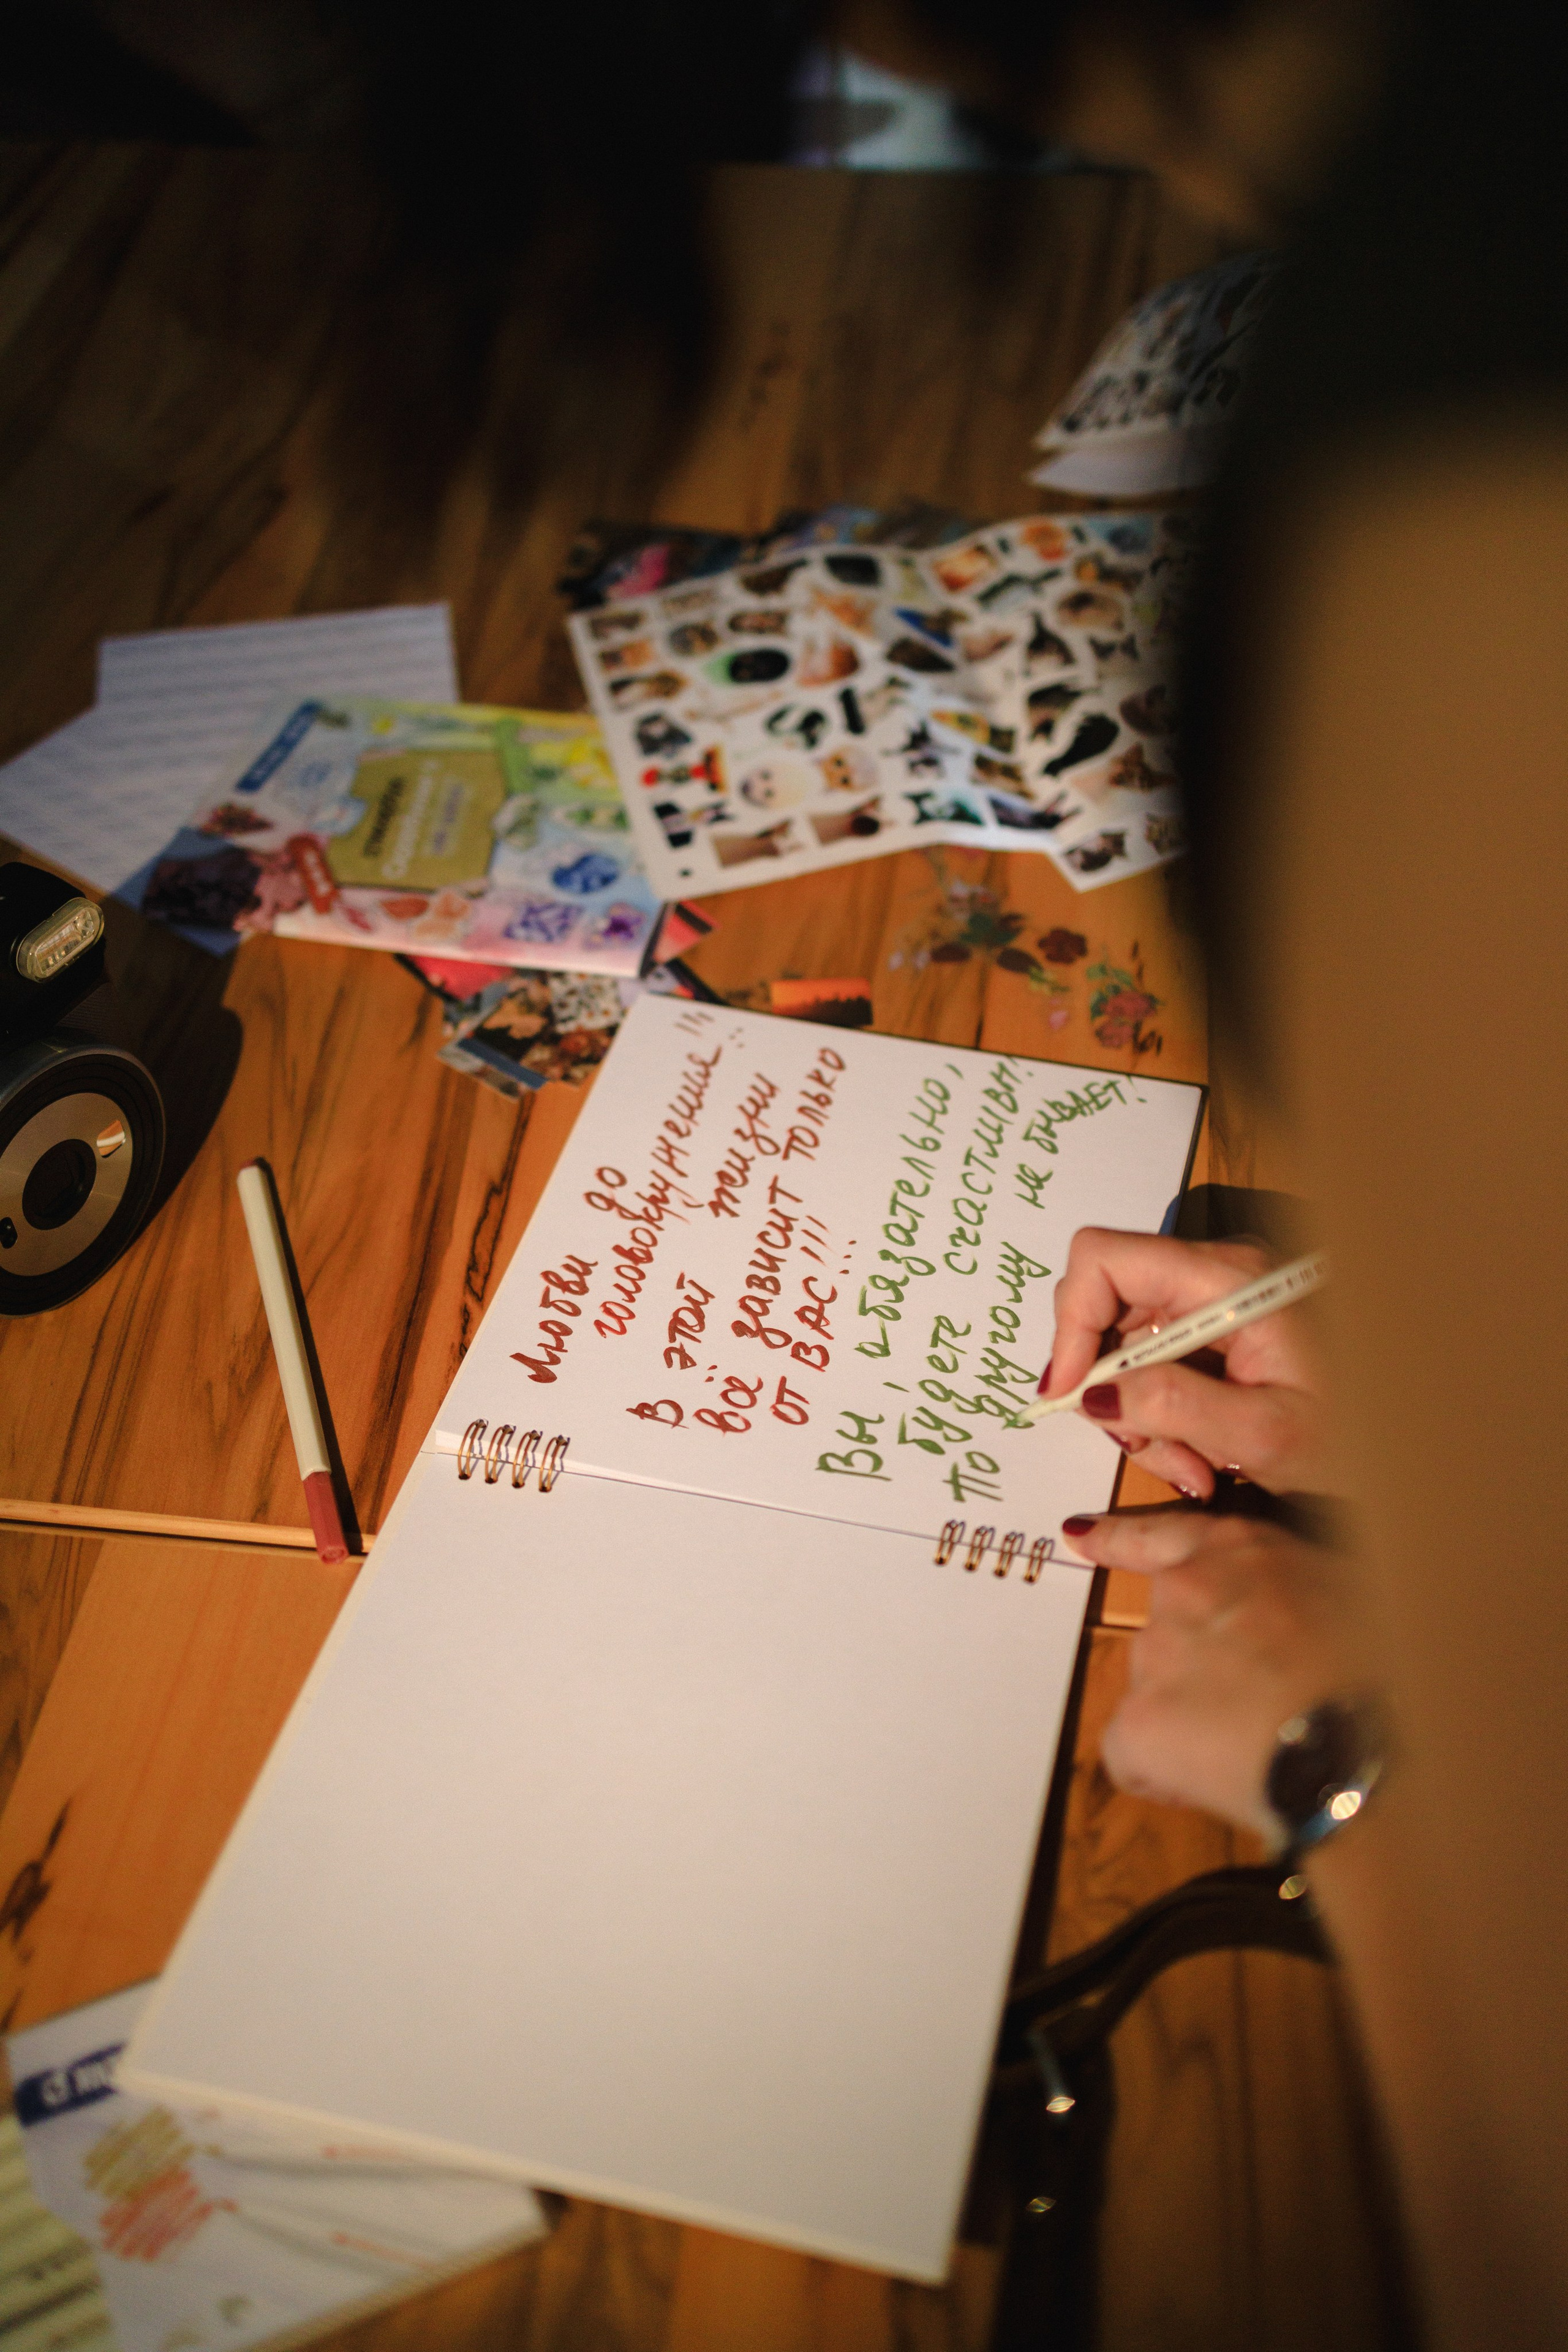 Любви до
головокружения!!!
В этой жизни
всё зависит только
от ВАС!!!
Вы, обязательно,
будете счастливы!
По другому не бывает!